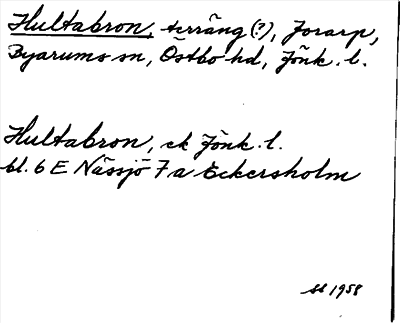 Hultabron, terräng(?), Jorarp,
Byarums sn, Östbo hd, Jönk. l.
Hultabron, ek Jönk. l.
bl. 6 E Nässjö 7 a Eckersholm
1958